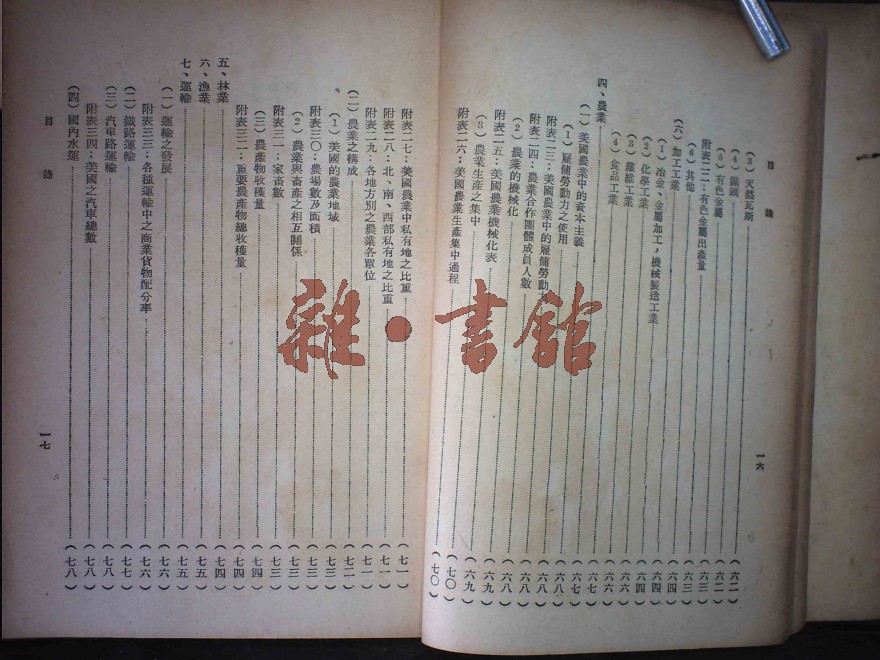 目錄
(3)天然瓦斯……(六二)
(4)鐵礦……(六二)
(5)有色金屬……(六二)
附表二二：有色金屬出產量……(六三)
(6)其他……(六三)
(六)加工工業……(六四)
(1)冶金、金屬加工，機械製造工業……(六四)
(2)化學工業……(六四)
(3)纖維工業……(六六)
(4)食品工業……(六六)
四、農業……(六七)
(一)美國農業中的資本主義……(六七)
(1)雇傭勞動力之使用……(六八)
附表二三：美國農業中的雇傭勞動
附表二四：農業合作團體成員人數……(六八)
(2)農業的機械化……(六八)
附表二五：美國農業機械化表……(六九)
(3)農業生產之集中……(六九)
附表二六：美國農業生產集中過程……(七〇)
一六
附表二七：美國農業中私有地之比重……(七一)
附表二八：北、南、西部私有地之比重……(七一)
附表二九：各地方別之農業各單位……(七一)
(二)農業之構成……(七二)
(1)美國的農業地域……(七三)
附表三〇：農場數及面積……(七三)
(2)農業與畜產之相互關係……(七三)
附表三一：家畜數……(七三)
(三)農產物收穫量……(七四)
附表三二：重要農產物總收穫量……(七四)
五、林業……(七四)
六、漁業……(七五)
七、運輸……(七五)
(一)運輸之發展……(七六)
附表三三：各種運輸中之商業貨物配分率……(七六)
(二)鐵路運輸……(七七)
(三)汽車路運輸……(七八)
附表三四：美國之汽車總數……(七八)
(四)國內水運……(七八)
目錄
一七
雜·書館